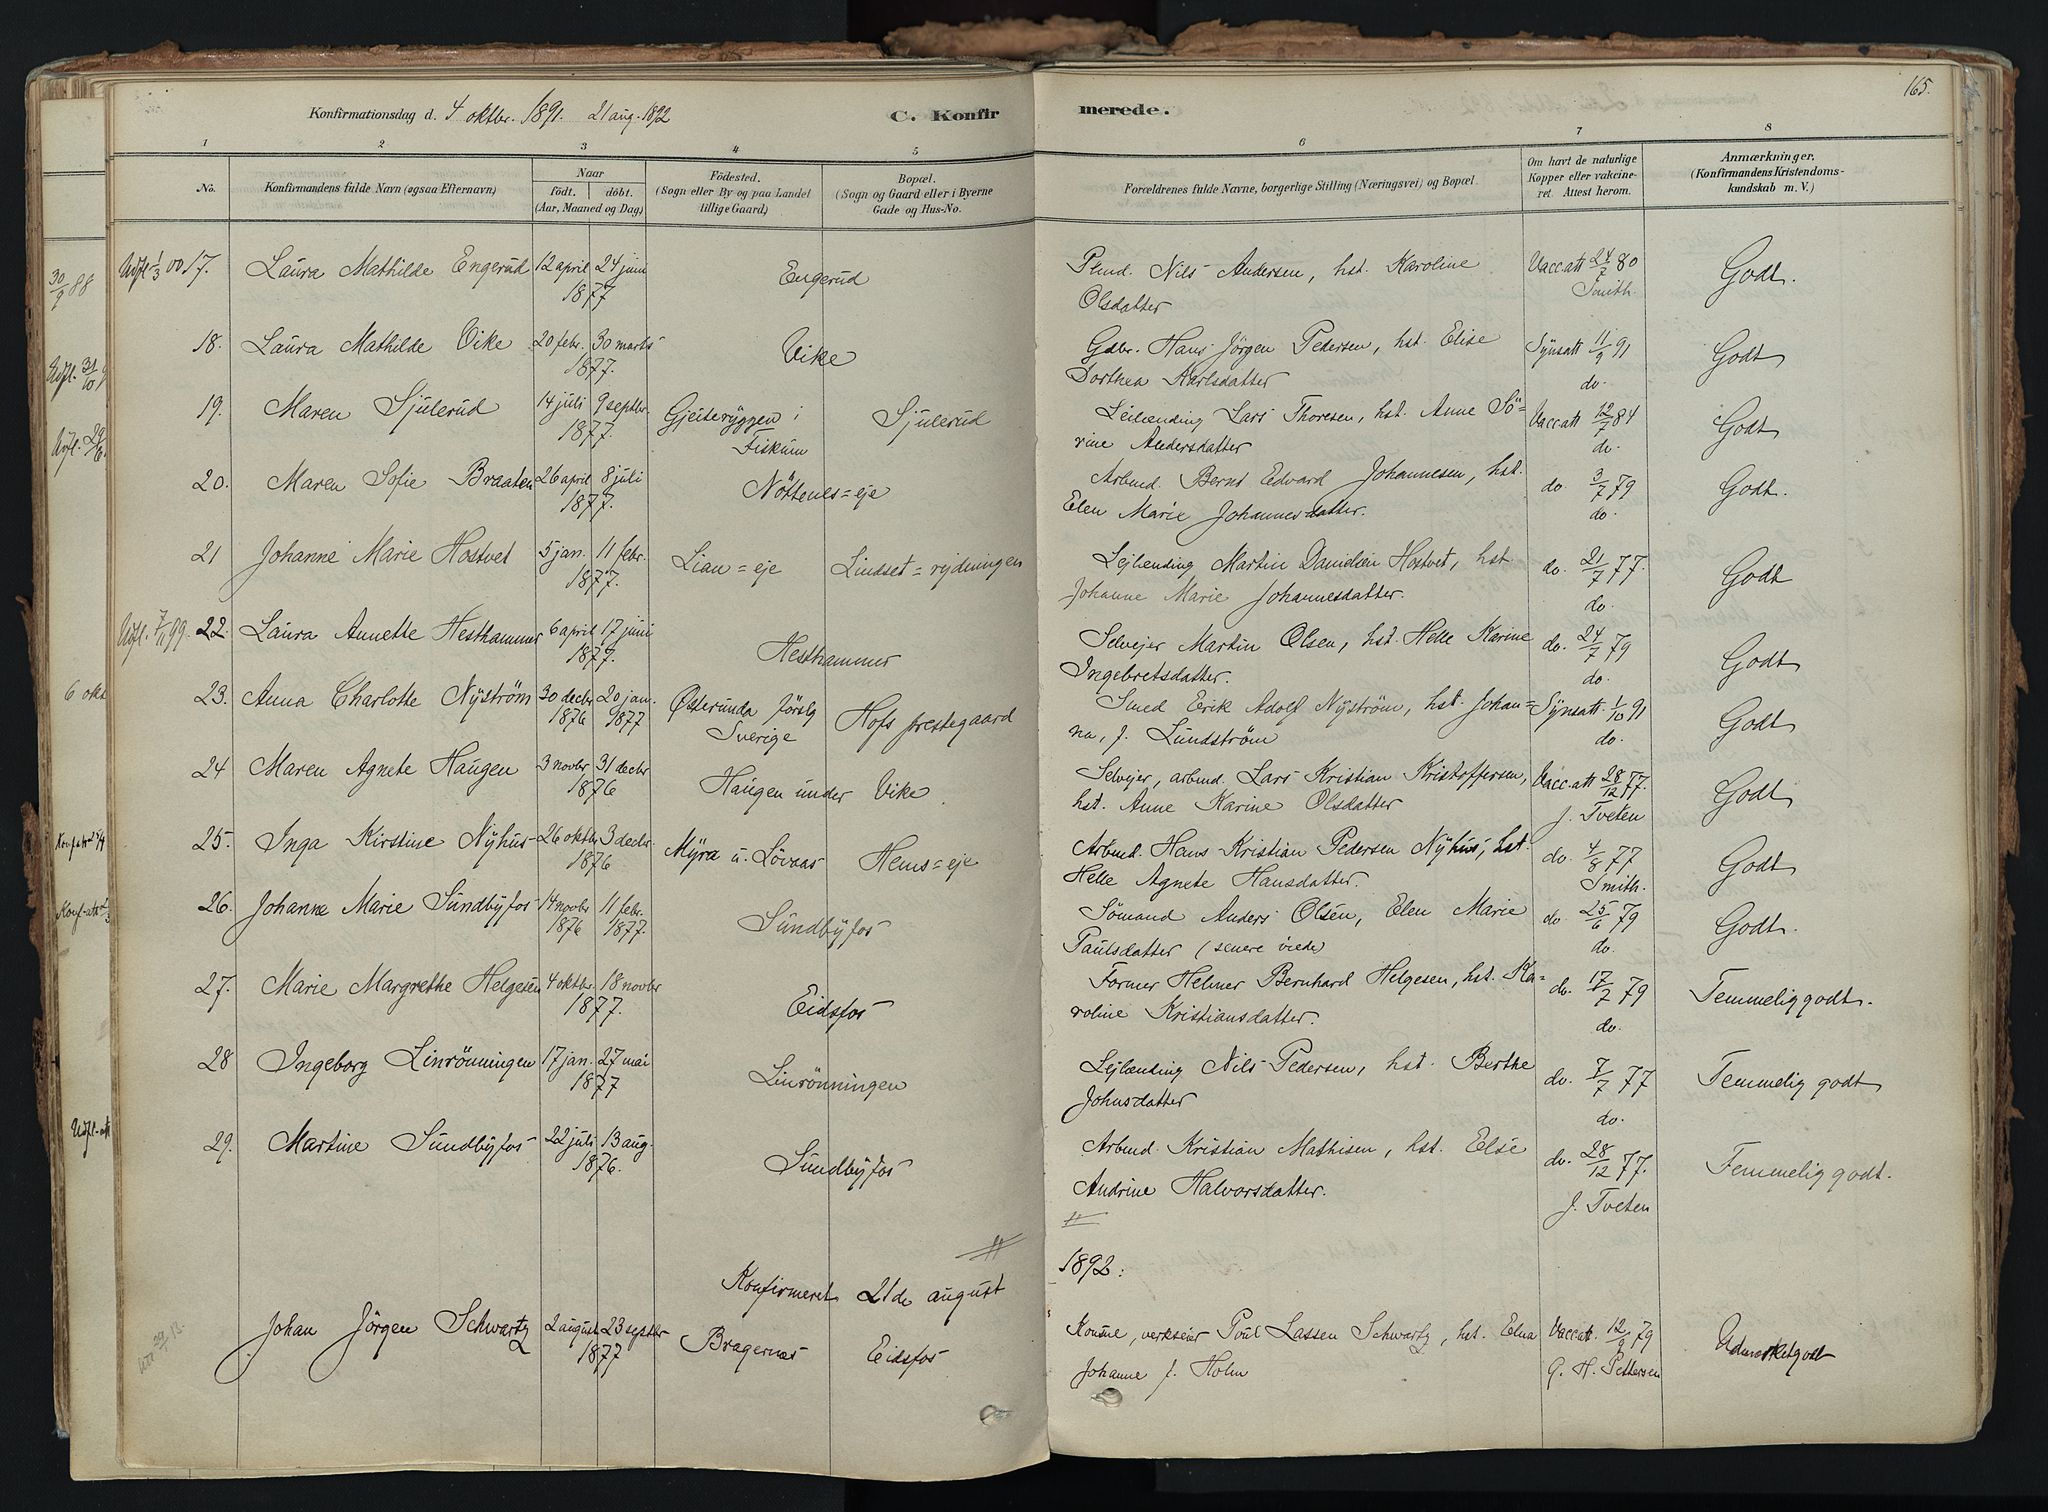 165.
Konfirmationsdag d. 4 oktbr. 1891. 21 aug. 1892
C. Konfirmerede.
1 2 3 4 5 6 7 8
No.
Konfirmandens fulde Navn (ogsaa Efternavn)
Naar
födt. döbt.
(Aar, Maaned og Dag)
Födested.
(Sogn eller By og paa Landet
tillige Gaard)
Bopæl.
(Sogn og Gaard eller i Byerne
Gade og Hus-No.
Forældrenes fulde Navne, borgerlige Stilling (Næringsvei) og Bopæl.
Om havt de naturlige
Kopper eller vakcine-
ret. Attest herom.
Anmærkninger.
(Konfirmandens Kristendoms-
kundskab m. V.)
Udfl. 1/3 00 17. Laura Mathilde Engerud 12 april 24 juni 1877 Engerud
Nils Andersen, hst. Karoline
Olsdatter
Vaccatt 24/7 80
Smith.
Godt.
18. Laura Mathilde Vike 20 febr. 30 marts 1877. Vike
Gdbr. Hans Jörgen Pedersen, hst. Elise
Dorthea Karlsdatter
Synsatt 11/9 91
do.
Godt
19. Maren Sjulerud 14 juli 9 septbr. 1877. Gjeiteryggen i Fiskum Sjulerud
Leilænding Lars Thoresen, hst. Anne Sö=
rine Andersdatter
Vaccatt 12/7 84
do.
Godt
20. Maren Sofie Braaten 26 april 8 juli 1877. Nöttenes=eje
Arbmd. Bernt Edvard Johannesen, hst.
Elen Marie Johannesdatter.
do. 3/7 79
do.
Godt.
21 Johanne Marie Hostvet 5 jan. 11 febr. 1877. Lian=eje Lindset=rydningen
Lejlænding Martin Danielsen Hostvet, hst.
Johanne Marie Johannesdatter.
do. 21/7 77.
do.
Godt
Udfl. 7/11 99. 22. Laura Annette Hesthammer 6 april 17 juni 1877. Hesthammer
Selvejer Martin Olsen, hst. Helle Karine
Ingebretsdatter.
do. 24/7 79
do.
Godt
23. Anna Charlotte Nyström 30 decbr 1876 20 jan. 1877 Østerunda Sverige Hofs prestegaard
Smed Erik Adolf Nyström, hst. Johan=
na, f. Lundström
Synsatt. 1/10 91
do.
Godt
24 Maren Agnete Haugen 3 novbr 31 decbr 1876 Haugen under Vike
Selvejer, arbmd. Lars Kristian Kristoffersen,
hst. Anne Karine Olsdatter
Vacc.att 28/12 77.
J. Tveten
Godt
25. Inga Kirstine Nyhus 26 oktbr 3 decbr. 1876 Myra u. Lövaas Hems=eje
Arbmd. Hans Kristian Pedersen Nyhus, hst.
Helle Agnete Hansdatter.
do. 4/8 77
Smith.
Godt
26. Johanne Marie Sundbyfos 14 novbr 1876 11 febr. 1877. Sundbyfos
Sömand Anders Olsen, Elen Marie
Paulsdatter (senere viede)
do. 25/6 79
do.
Godt.
27. Marie Margrethe Helgesen 4 oktbr. 18 novbr 1877. Eidsfos
Former Helmer Bernhard Helgesen, hst. Ka=
roline Kristiansdatter.
do. 17/7 79
do.
Temmelig godt.
28 Ingeborg Linrönningen 17 jan. 27 mai 1877 Linrönningen
Lejlænding Nils Pedersen, hst. Berthe
Johnsdatter
do. 7/7 77
do.
Temmelig godt
29. Martine Sundbyfos 22 juli 13 aug. 1876. Sundbyfos
Arbmd. Kristian Mathisen, hst. Else
Andrine Halvorsdatter.
do. 28/12 77.
J. Tveten
Temmelig godt.
Konfirmeret 21de august 1892:
Johan Jörgen Schwartz 2 august 23 septbr 1877 Bragernes Eidsfos
Konsul, verkseier Poul Lassen Schwartz, hst. Elna
Johanne f. Holm
Vaccatt. 12/9 79
G. H. Pettersen
Udmerket godt
30/9 88
Udfl. 31/10
Udfl. 29/6
6 okt
Udfl-att